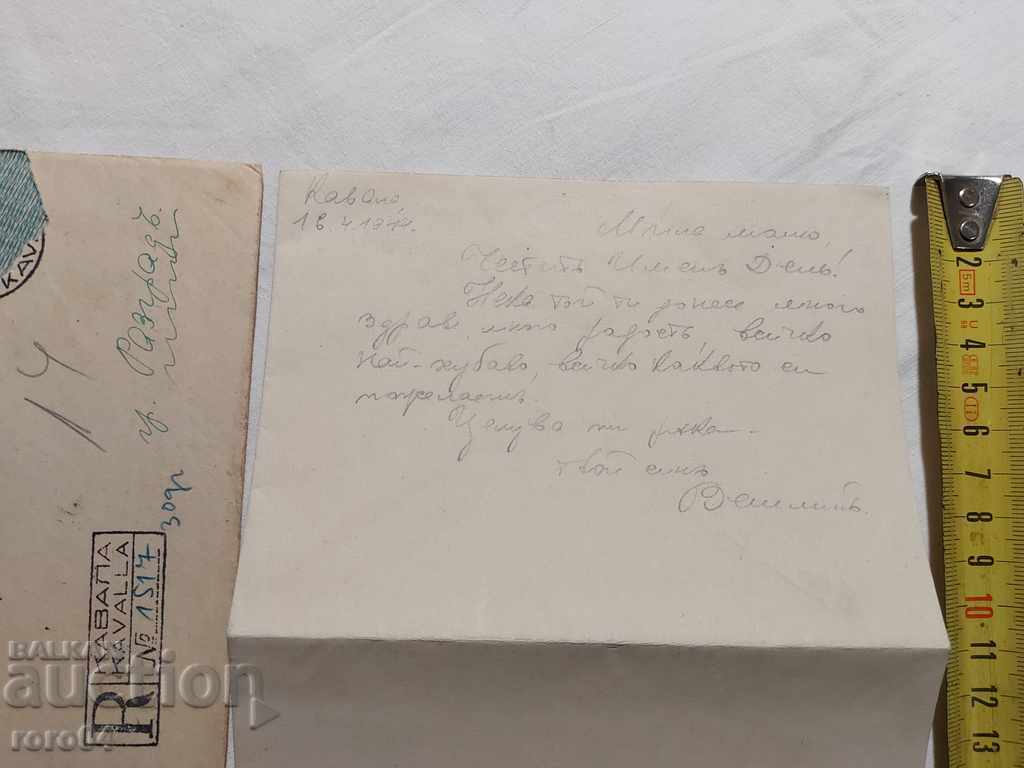 KAV
гр. Разградъ
14
30др
R КАВАЛА
KAVALLA
№ 1517
Кавала
16.4.194
Мила мамо,
Честитъ Именъ День!
Нека той ти донесе много
здраве, много радость, всичко
най-хубаво, всичко каквото си
пожелаешъ.
Целува ти ръка
твой синъ
2 3 4 5 6 7 8 9 10 11 12 13
5m
BALKAN
auction
roro64